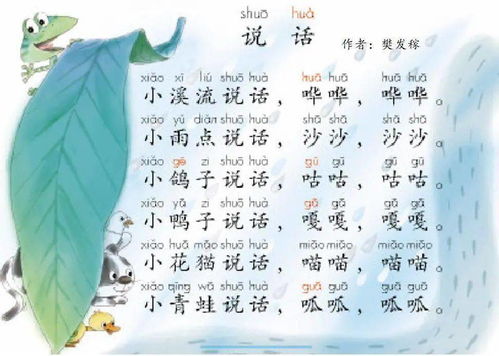 shuō huà
说 话
作者：樊发稼
xiǎo xī liú shuō huà huā huā huā huā
小溪流说话，哗哗，哗哗。
xiǎo yǔ diǎn shuō huà shā shā shā shā
小雨点说话，沙沙，沙沙。
xiǎo gē zi shuō huà gū gū gū gū
小鸽子说话，咕咕，咕咕。
xiǎo yā zi shuō huà gā gā gā gā
小鸭子说话，嘎嘎，嘎嘎。
xiǎo huā māo shuō huà miāo miāo miāo miāo
小花猫说话，喵喵，喵喵。
xiǎo qīng wā shuō huà guā guā guā guā
小青蛙说话，呱呱，呱呱。